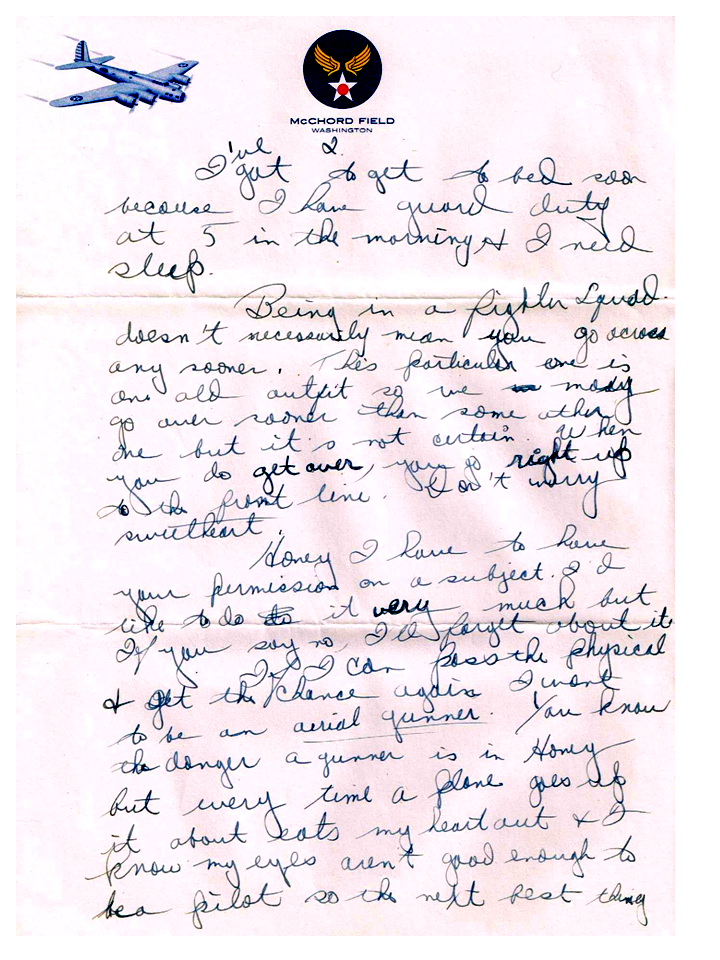 McCHORD FIELD
WASHINGTON
2.
I've got to get to bed soon
because I have guard duty
at 5 in the morning & I need
sleep.
Being in a fighter Squad.
doesn't necessarily mean you go across
any sooner. This particular one is
an old outfit so we may
go over sooner than some other
one but it's not certain. When
you do get over, you go right up
to the front line. Don't worry
sweetheart.
Honey I have to have
your permission on a subject. I'd
like to do it very much but
If you say no, I'll forget about it.
If I can pass the physical
& get the chance again I want
to be an aerial gunner. You know
the danger a gunner is in Honey
but every time a plane goes up
it about eats my heart out & I
know my eyes aren't good enough to
be a pilot so the next best thing